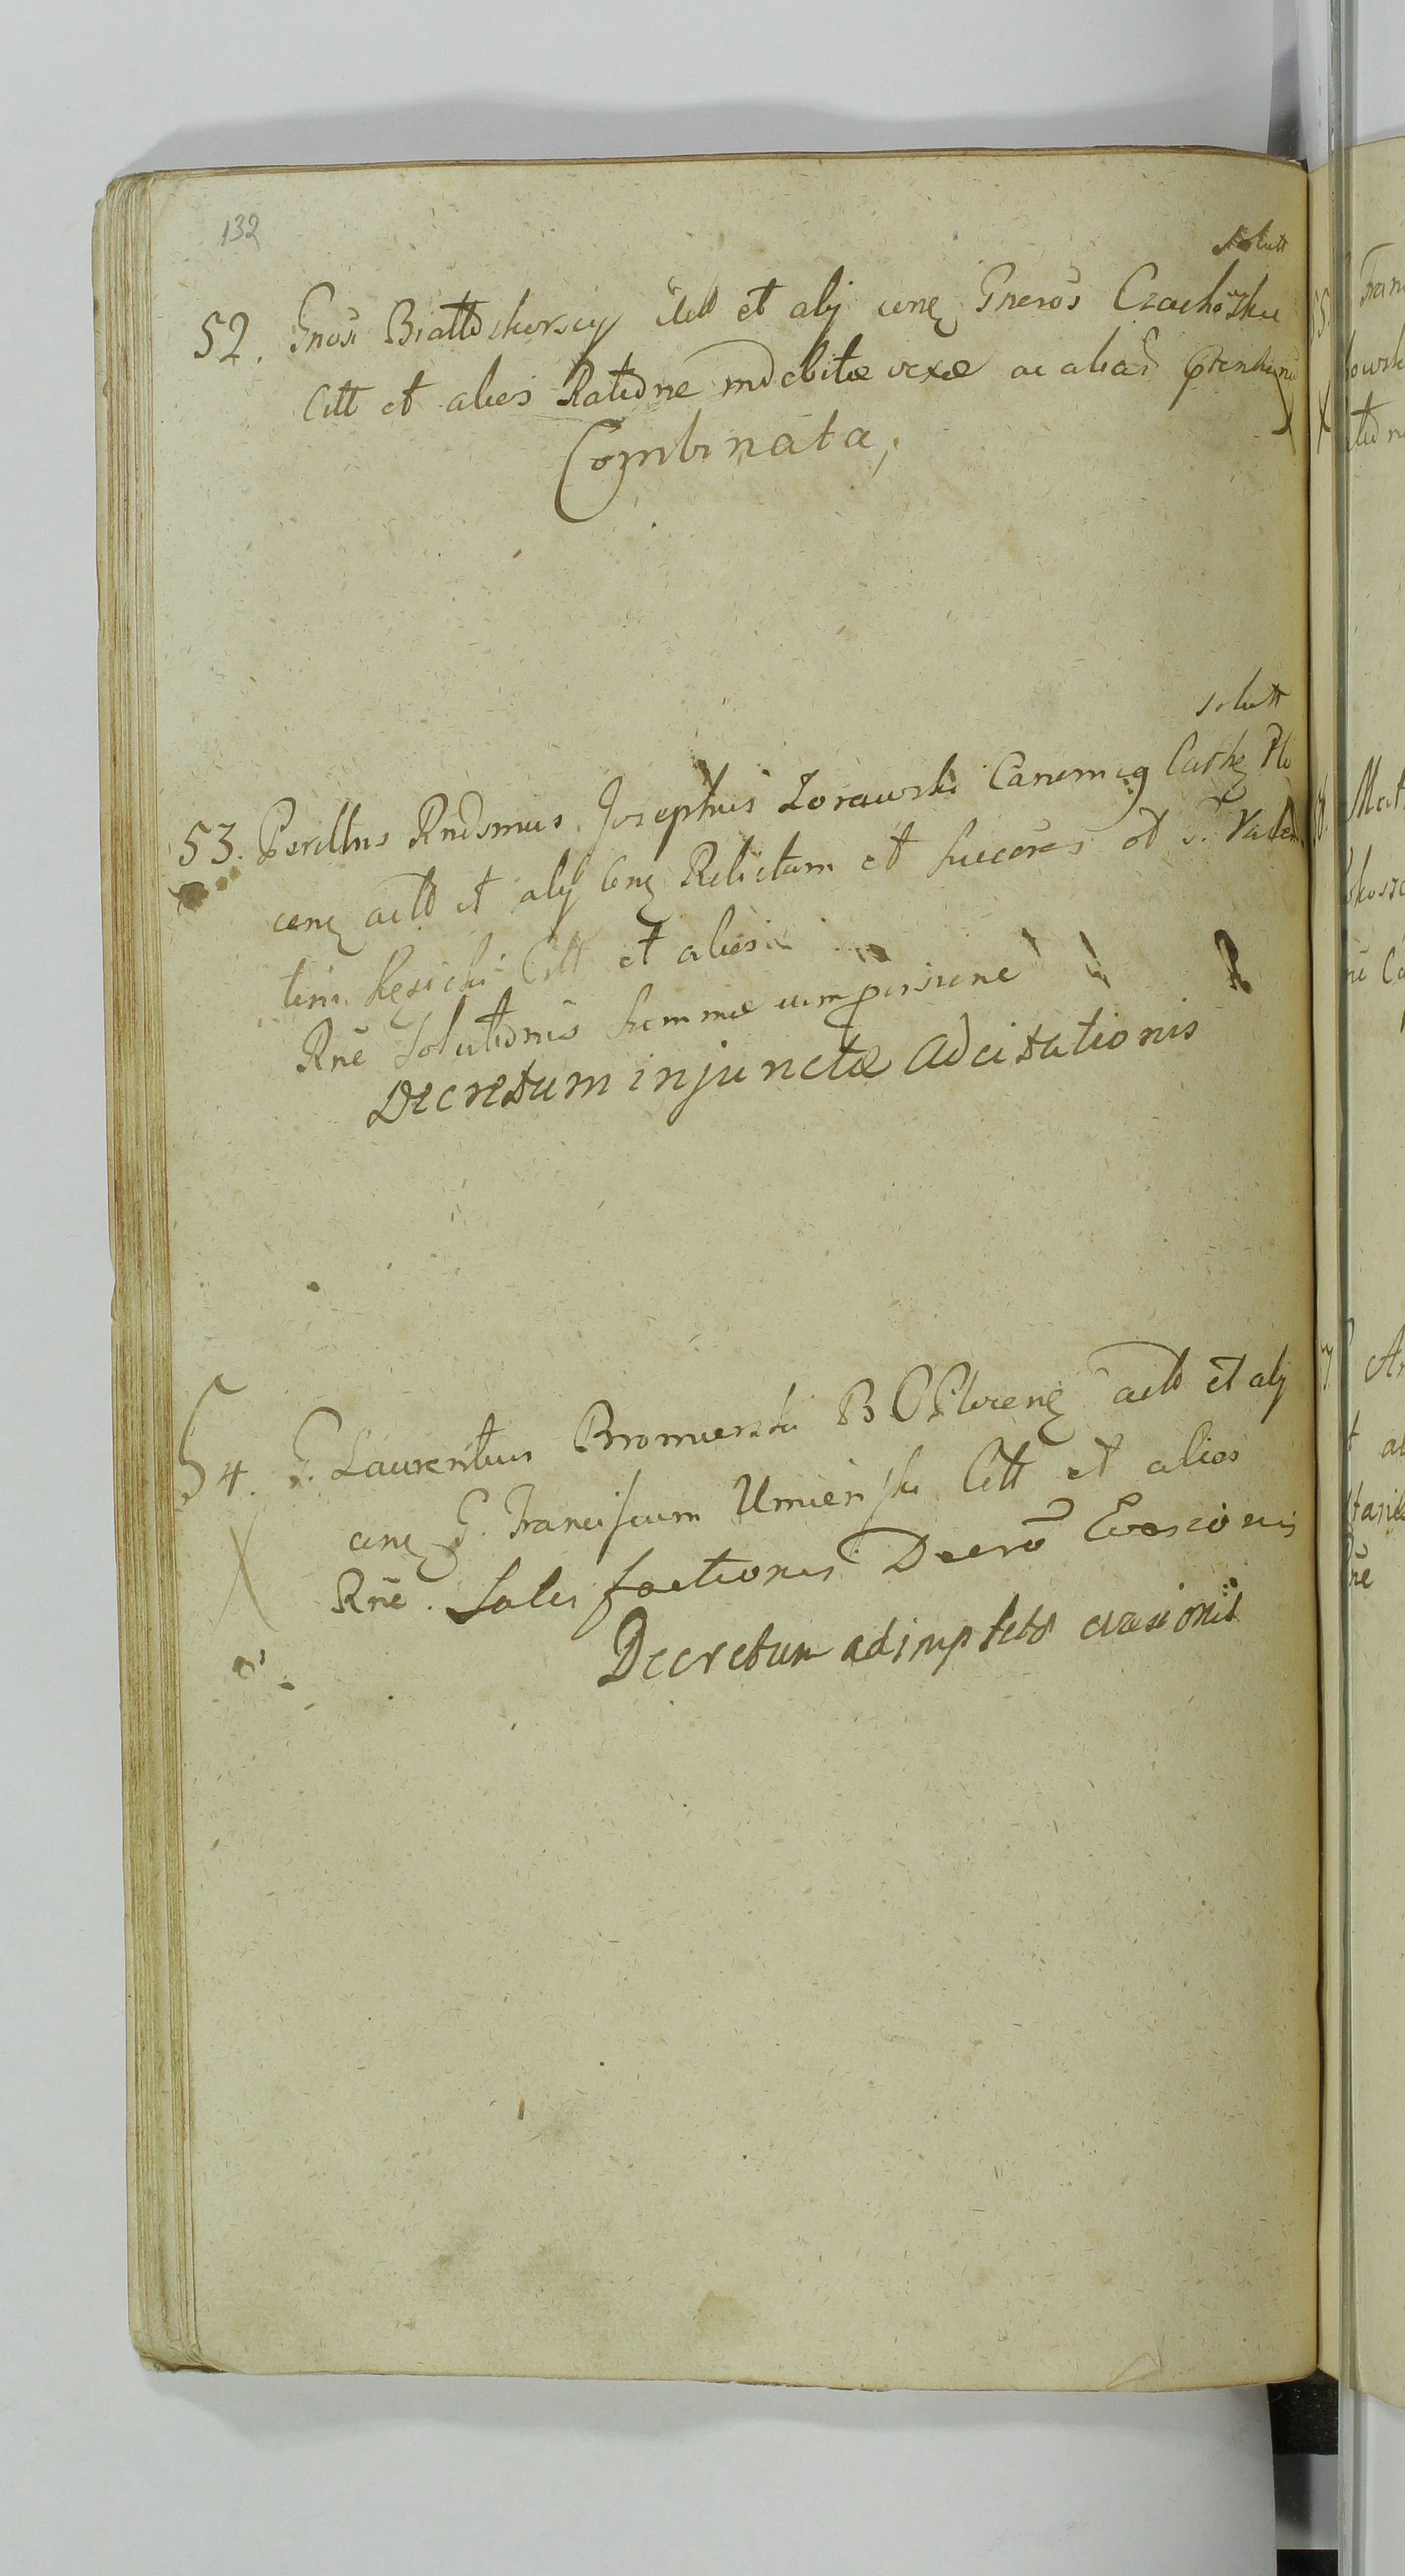 132
solutt
52. Gnosi Białłoskorscy actt et alij conq Gneros Czachoskie
Citt et alios Ratione indebitæ vexæ ac alias
Combinata,
solutt
53. Perilltris Rndsmus Josephus Zorawski Canonicq Cathq Plo
cenq actt et alij conq Relictam et succores ol G. Valen
tini Kęsicki Citt et alios
Rne Solutionis summæ cum provisione
Decretum injunctæ adcitationis
54. G. Laurentius Bromierski B C Plocenq actt et alij
conq G. Franciscum Umienski Citt et alios
Rne. Satisfactionis Decreto Evasionis
Decretum adimpleto evasionis